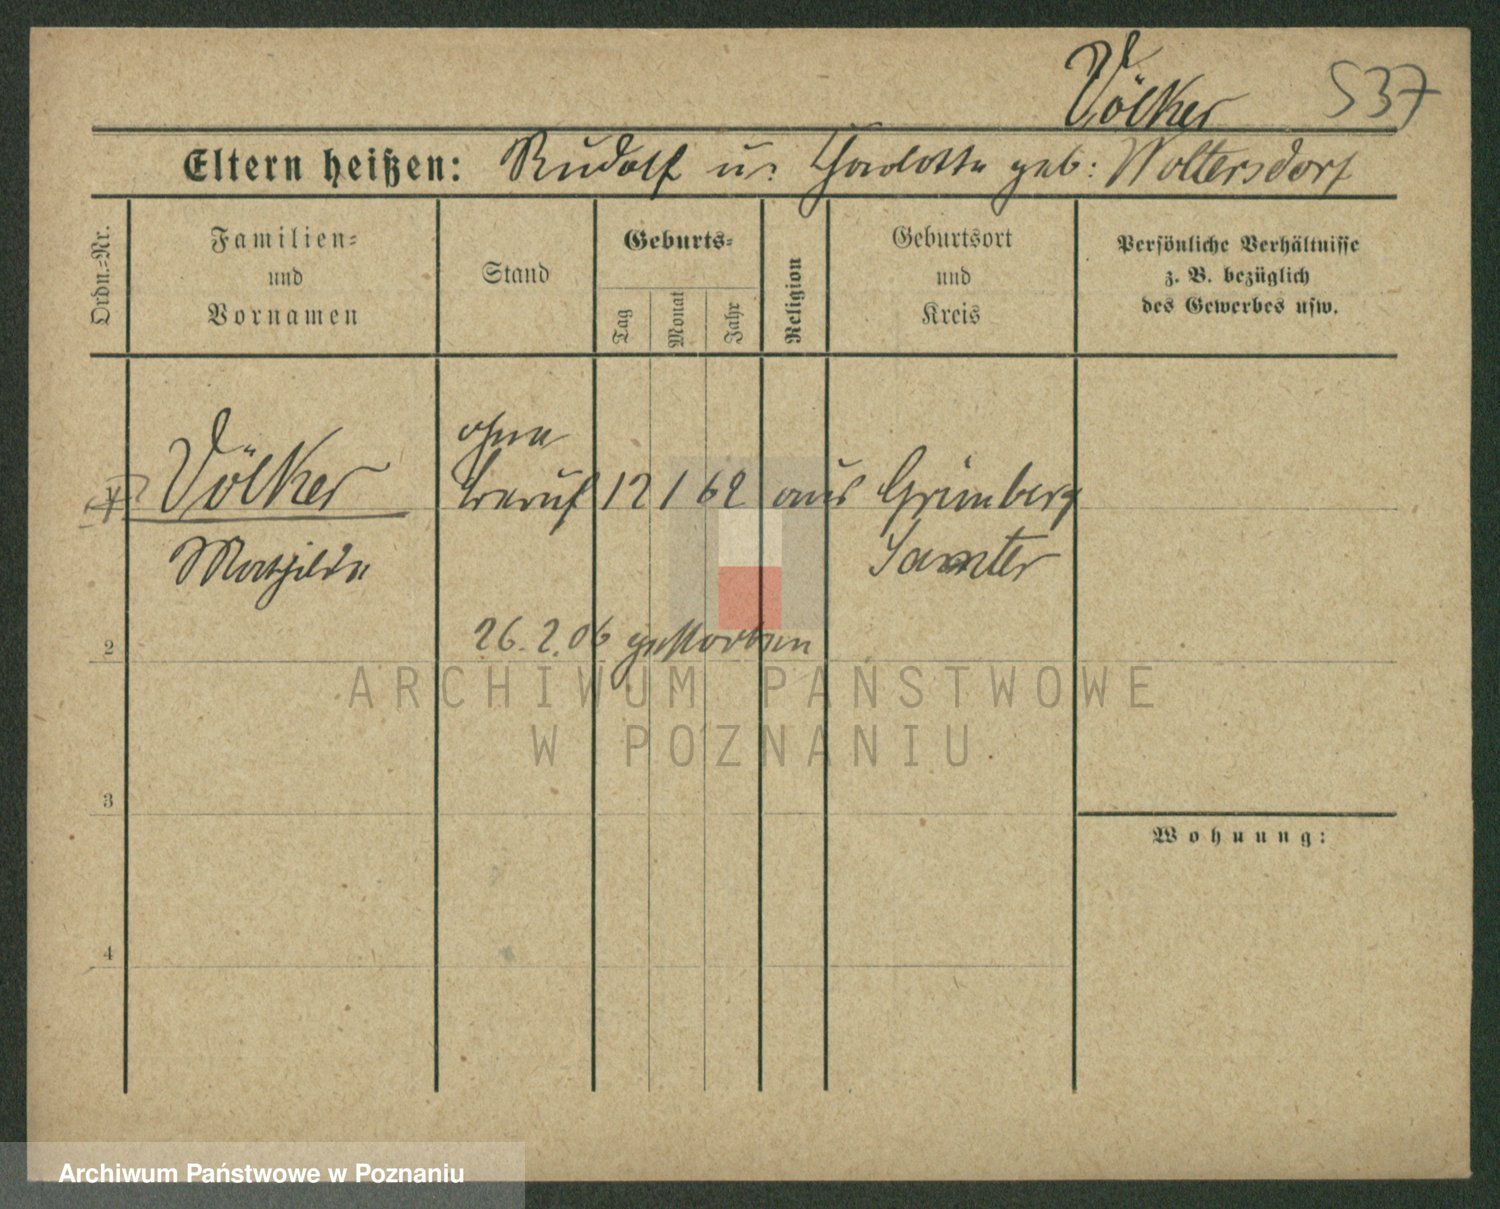 Völker 537
Eltern heißen: Rudolf u. Charlotte geb: Woltersdorf
Ordn.=Nr.
Familien=
und
Vornamen
Stand
Geburts=
Tag
Monat
Jahr
Religion
Geburtsort
und
Kreis
Persönliche Verhältnisse
z. B. bezüglich
des Gewerbes usw.
ohne
Völker Beruf 12 1 62 aus Grünberg
Mathilde Samter
26.2.06 gestorben
2
ARCHIWUM PAŃSTWOWE
W POZNANIU
3
Wohnung:
4
Archiwum Państwowe w Poznaniu